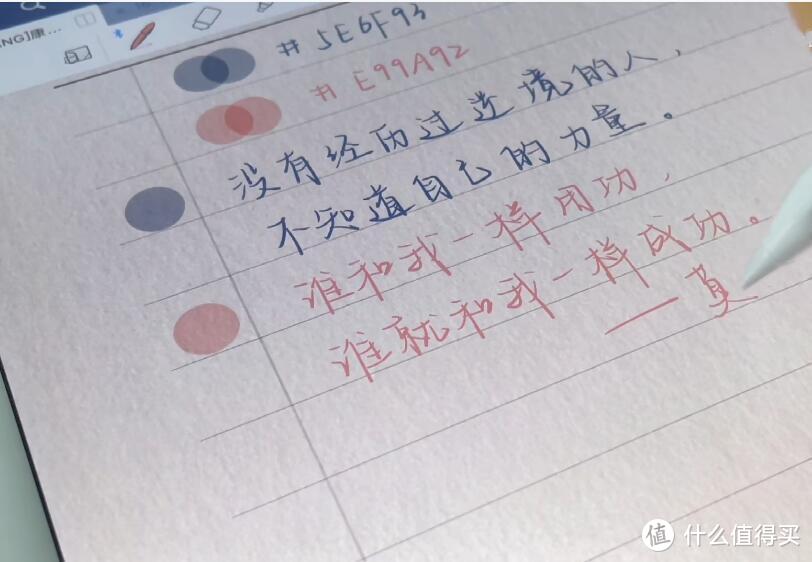 NG]康...
#5E6F93
#E99A92
没有经历过逆境的人,
不知道自己的力量。
谁和我一样用功,
谁就和我一样成功。
——莫
值 什么值得买